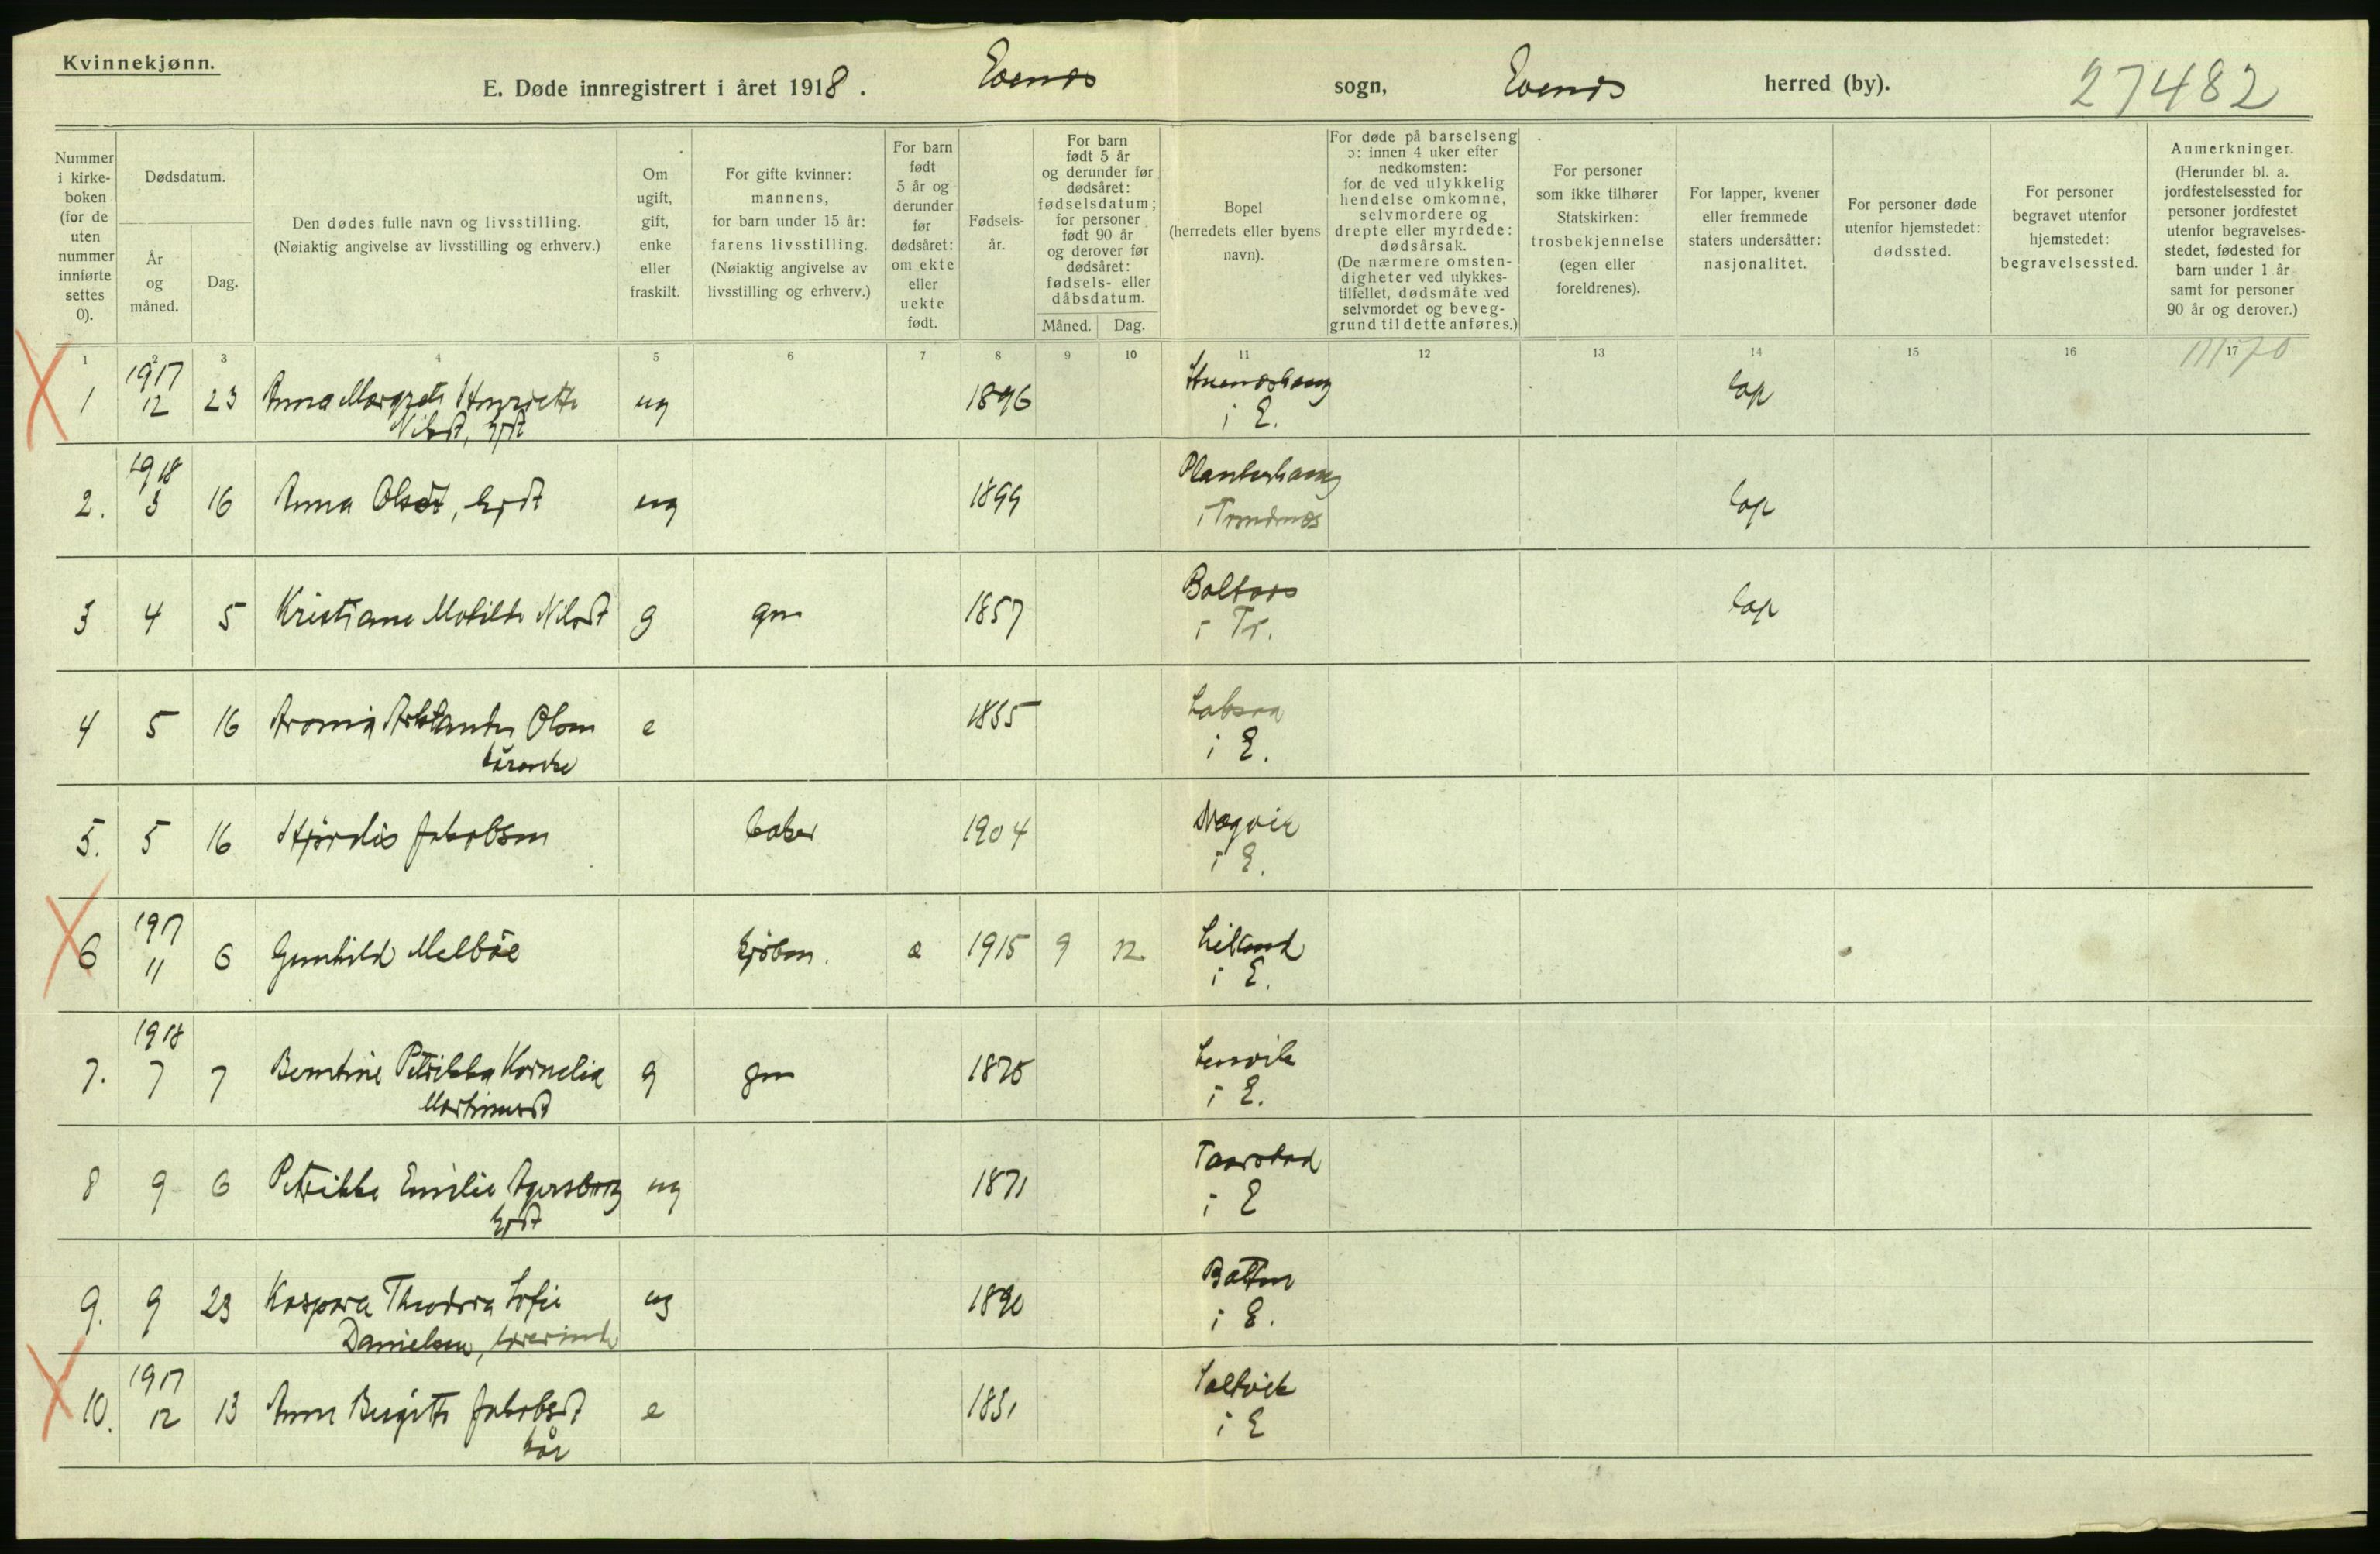 Kvinnekjønn.
E. Døde innregistrert i året 1918. Evenes sogn, Evenes herred (by). 27482
Nummer i kirke-boken (for de uten nummer innførte settes 0).
Dødsdatum.
År og måned.
Dag.
Den dødes fulle navn og livsstilling.
(Nøiaktig angivelse av livsstilling og erhverv.)
Om ugift, gift, enke eller fraskilt.
For gifte kvinner: mannens, for barn under 15 år: farens livsstilling. (Nøiaktig angivelse av livsstilling og erhverv.)
For barn født 5 år og derunder før dødsåret: om ekte eller uekte født.
Fødsels-år.
For barn født 5 år og derunder før dødsåret: fødselsdatum; for personer født 90 år og derover før dødsåret: fødsels- eller dåbsdatum.
Måned. Dag.
Bopel (herredets eller byens navn).
For døde på barselseng ɔ: innen 4 uker efter nedkomsten: for de ved ulykkelig hendelse omkomne, selvmordere og drepte eller myrdede: dødsårsak. (De nærmere omsten-digheter ved ulykkes-tilfellet, dødsmåte ved selvmordet og beveg-grund til dette anføres.)
For personer som ikke tilhører Statskirken: trosbekjennelse (egen eller foreldrenes).
For lapper, kvener eller fremmede staters undersåtter: nasjonalitet.
For personer døde utenfor hjemstedet: dødssted.
For personer begravet utenfor hjemstedet: begravelsessted.
Anmerkninger. (Herunder bl. a. jordfestelsessted for personer jordfestet utenfor begravelses-stedet, fødested for barn under 1 år samt for personer 90 år og derover.)
1 2 3 4 5 6 7 8 9 10 11 12 13 14 15 16 17
1 1917 12 23 Anna Margrete Henriette ug 1896 i E. lap
Nilsdt,
2. 1918 3 16 Anna Olsdt, ug 1899 Planterhaug i Trondnes lap
3 4 5 Kristiane Matilde Nilsdt g gm 1857 Boltaas i Tr. lap
4 5 16 Olsen e 1855 i E.
kårenke
5. 5 16 Hjørdis Jakobsen baker 1904 i E.
6 1917 11 6 Gunhild Melböe kjøbm. e 1915 9 12 Liland i E.
7. 1918 7 7 Berntine Petrikka Kornelia g gm 1875 Lenvik i E.
Martinusdt
8 9 6 Petrikke Emilie Agersborg ug 1871 Taarstad i E
9. 9 23 Kaspara Theodora Sofie ug 1890 Botten i E.
Danielsen, lærerinde
10. 1917 12 13 Anne Birgitte Jakobsdt e 1831 i E
kår